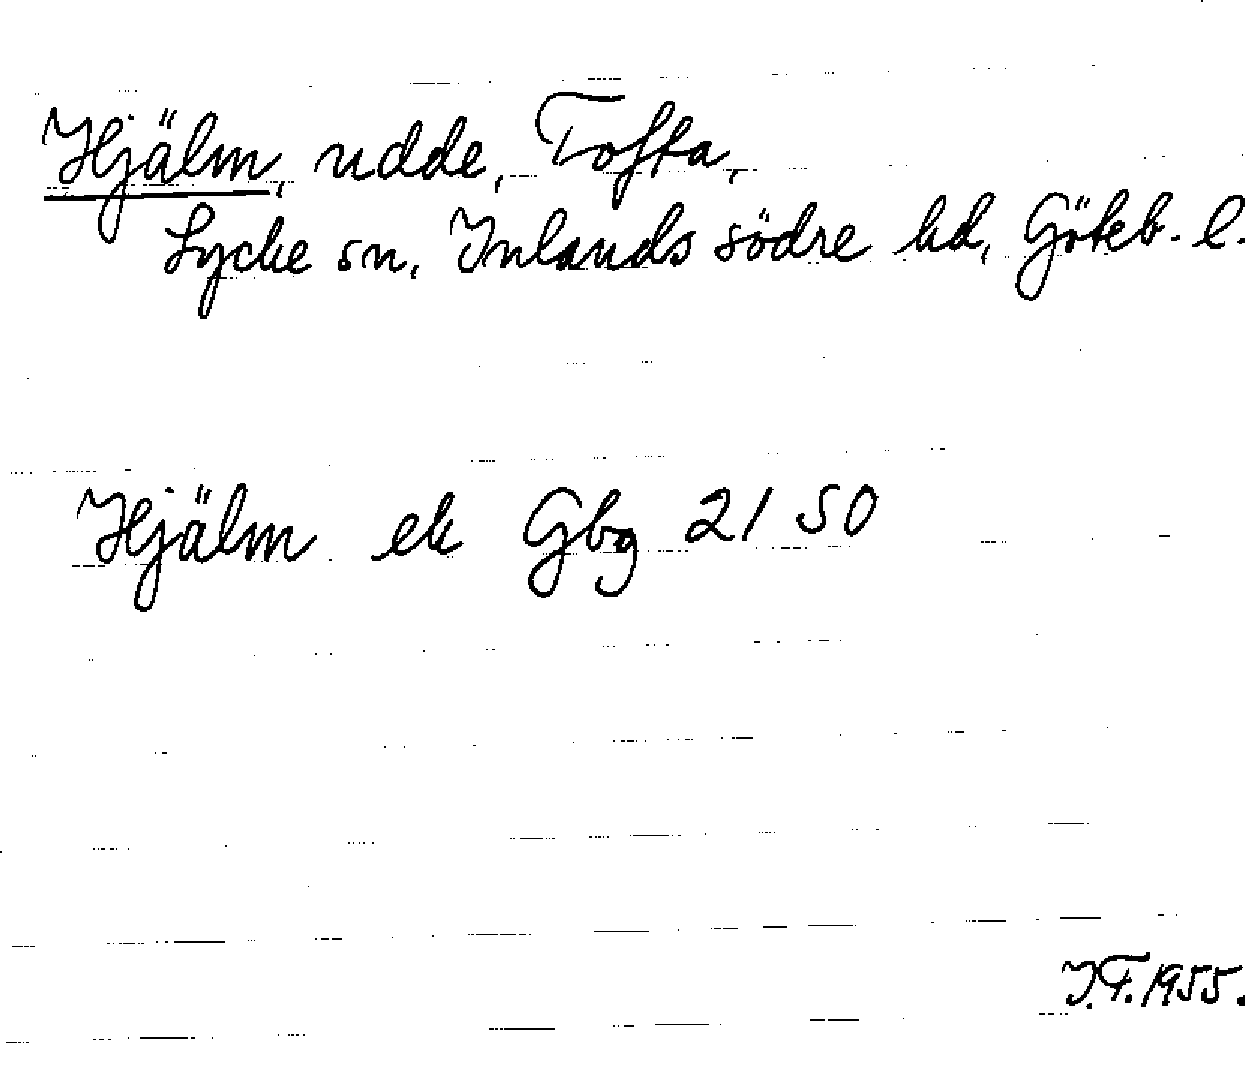 Hjälm, udde, Tofta,
Lycke sn, Inlands södre hd, Göteb. l.
Hjälm ek Gbg 21 50
I.F. 1955.